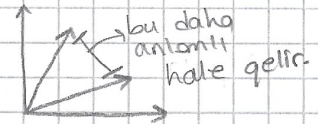 bu daha
anlamlı
hale gelir.